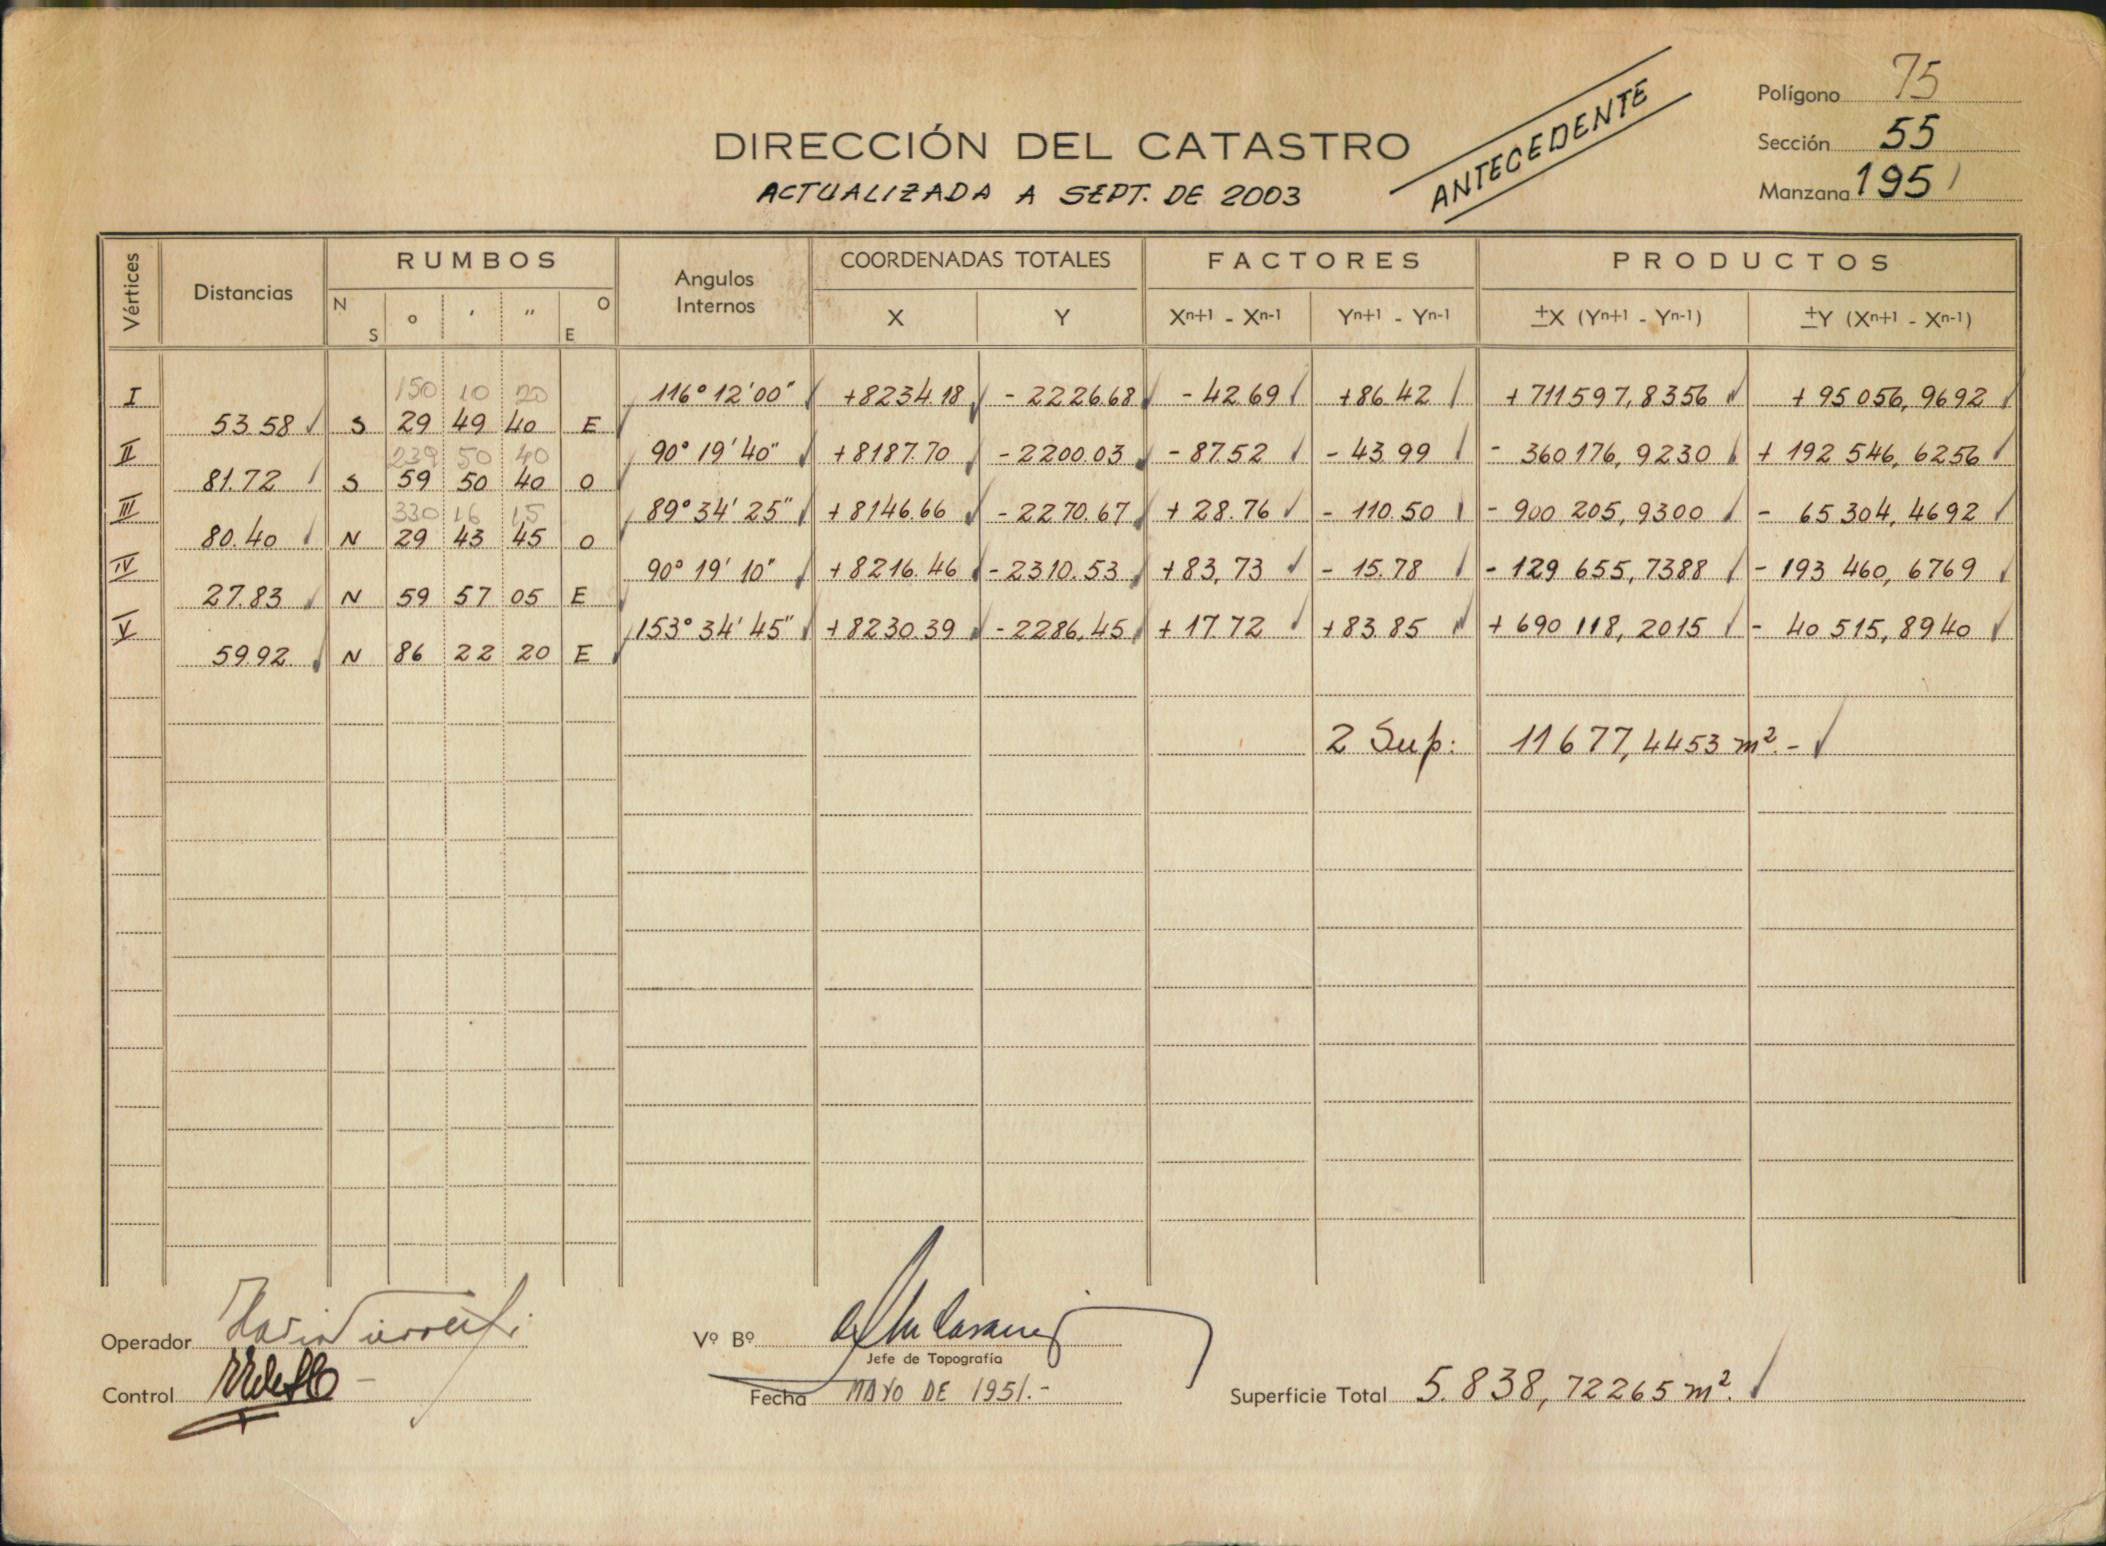 Polígono 75
DIRECCIÓN DEL CATASTRO
ANTECEDENTE
Sección 55
ACTUALIZADA A SEPT. DE 2003
Manzana 195
Vértices Distancias RUMBOS Angulos Internos COORDENADAS TOTALES FACTORES PRODUCTOS
N S o ' " O E X Y Xn+1 - Xn-1 Yn+1 - Yn-1 ±X (Yn+1 - Yn-1) ±Y (Xn+1 - Xn-1)
150 10 20
I 116° 12' 00" +8234.18 - 2226.68 - 42.69 +86.42 + 711597,8356 + 95 056,9692
53.58 S 29 49 40 E
239 50 40
II 90° 19' 40" +8187.70 - 2200.03 - 87.52 - 43.99 - 360 176,9230 + 192 546,6256
81.72 S 59 50 40 O
330 16 15
III 89° 34' 25" + 8146.66 - 2270.67 + 28.76 - 110.50 - 900 205,9300 - 65 304,4692
80.40 N 29 43 45 O
IV 90° 19' 10" + 8216.46 - 2310.53 + 83,73 - 15.78 - 129 655,7388 - 193 460,6769
27.83 N 59 57 05 E
V 153° 34' 45" + 8230.39 - 2286,45 + 17.72 + 83.85 + 690 118,2015 - 40 515,8940
59.92 N 86 22 20 E
2 Sup: 11 677,4453 m². -
Operador
Vº Bº
Jefe de Topografía
Control
Fecha MAYO DE 1951.-
Superficie Total 5.838,72265 m².